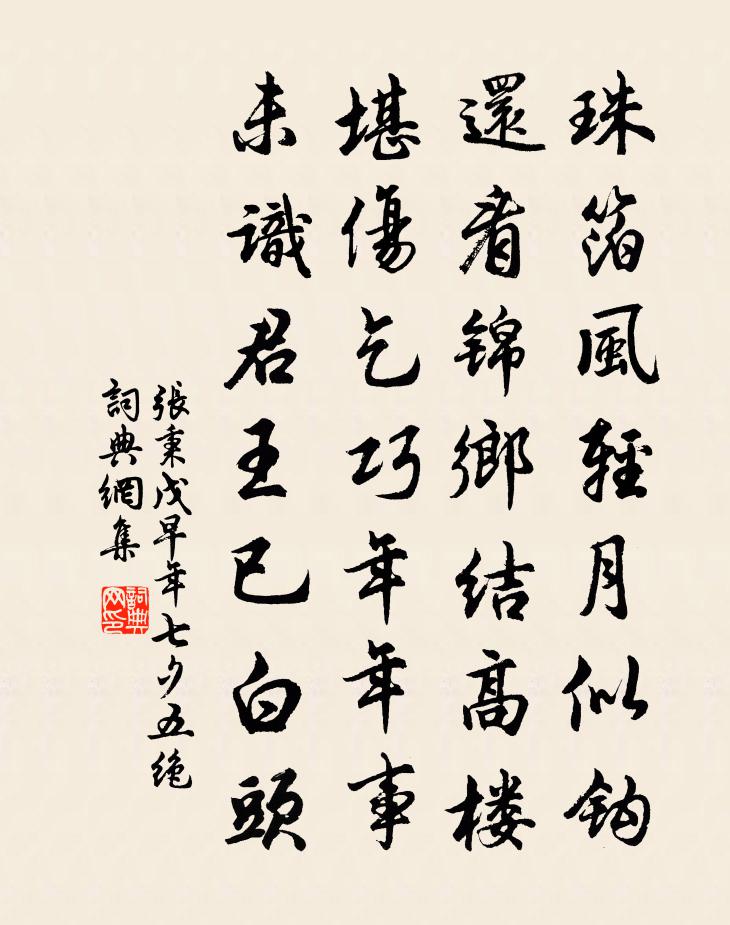 珠箔風輕月似鈎
還看錦鄉結高楼
堪傷乞巧年年事
未識君王已白頭
張秉戊早年七夕五绝
詞典網集
詞典网印